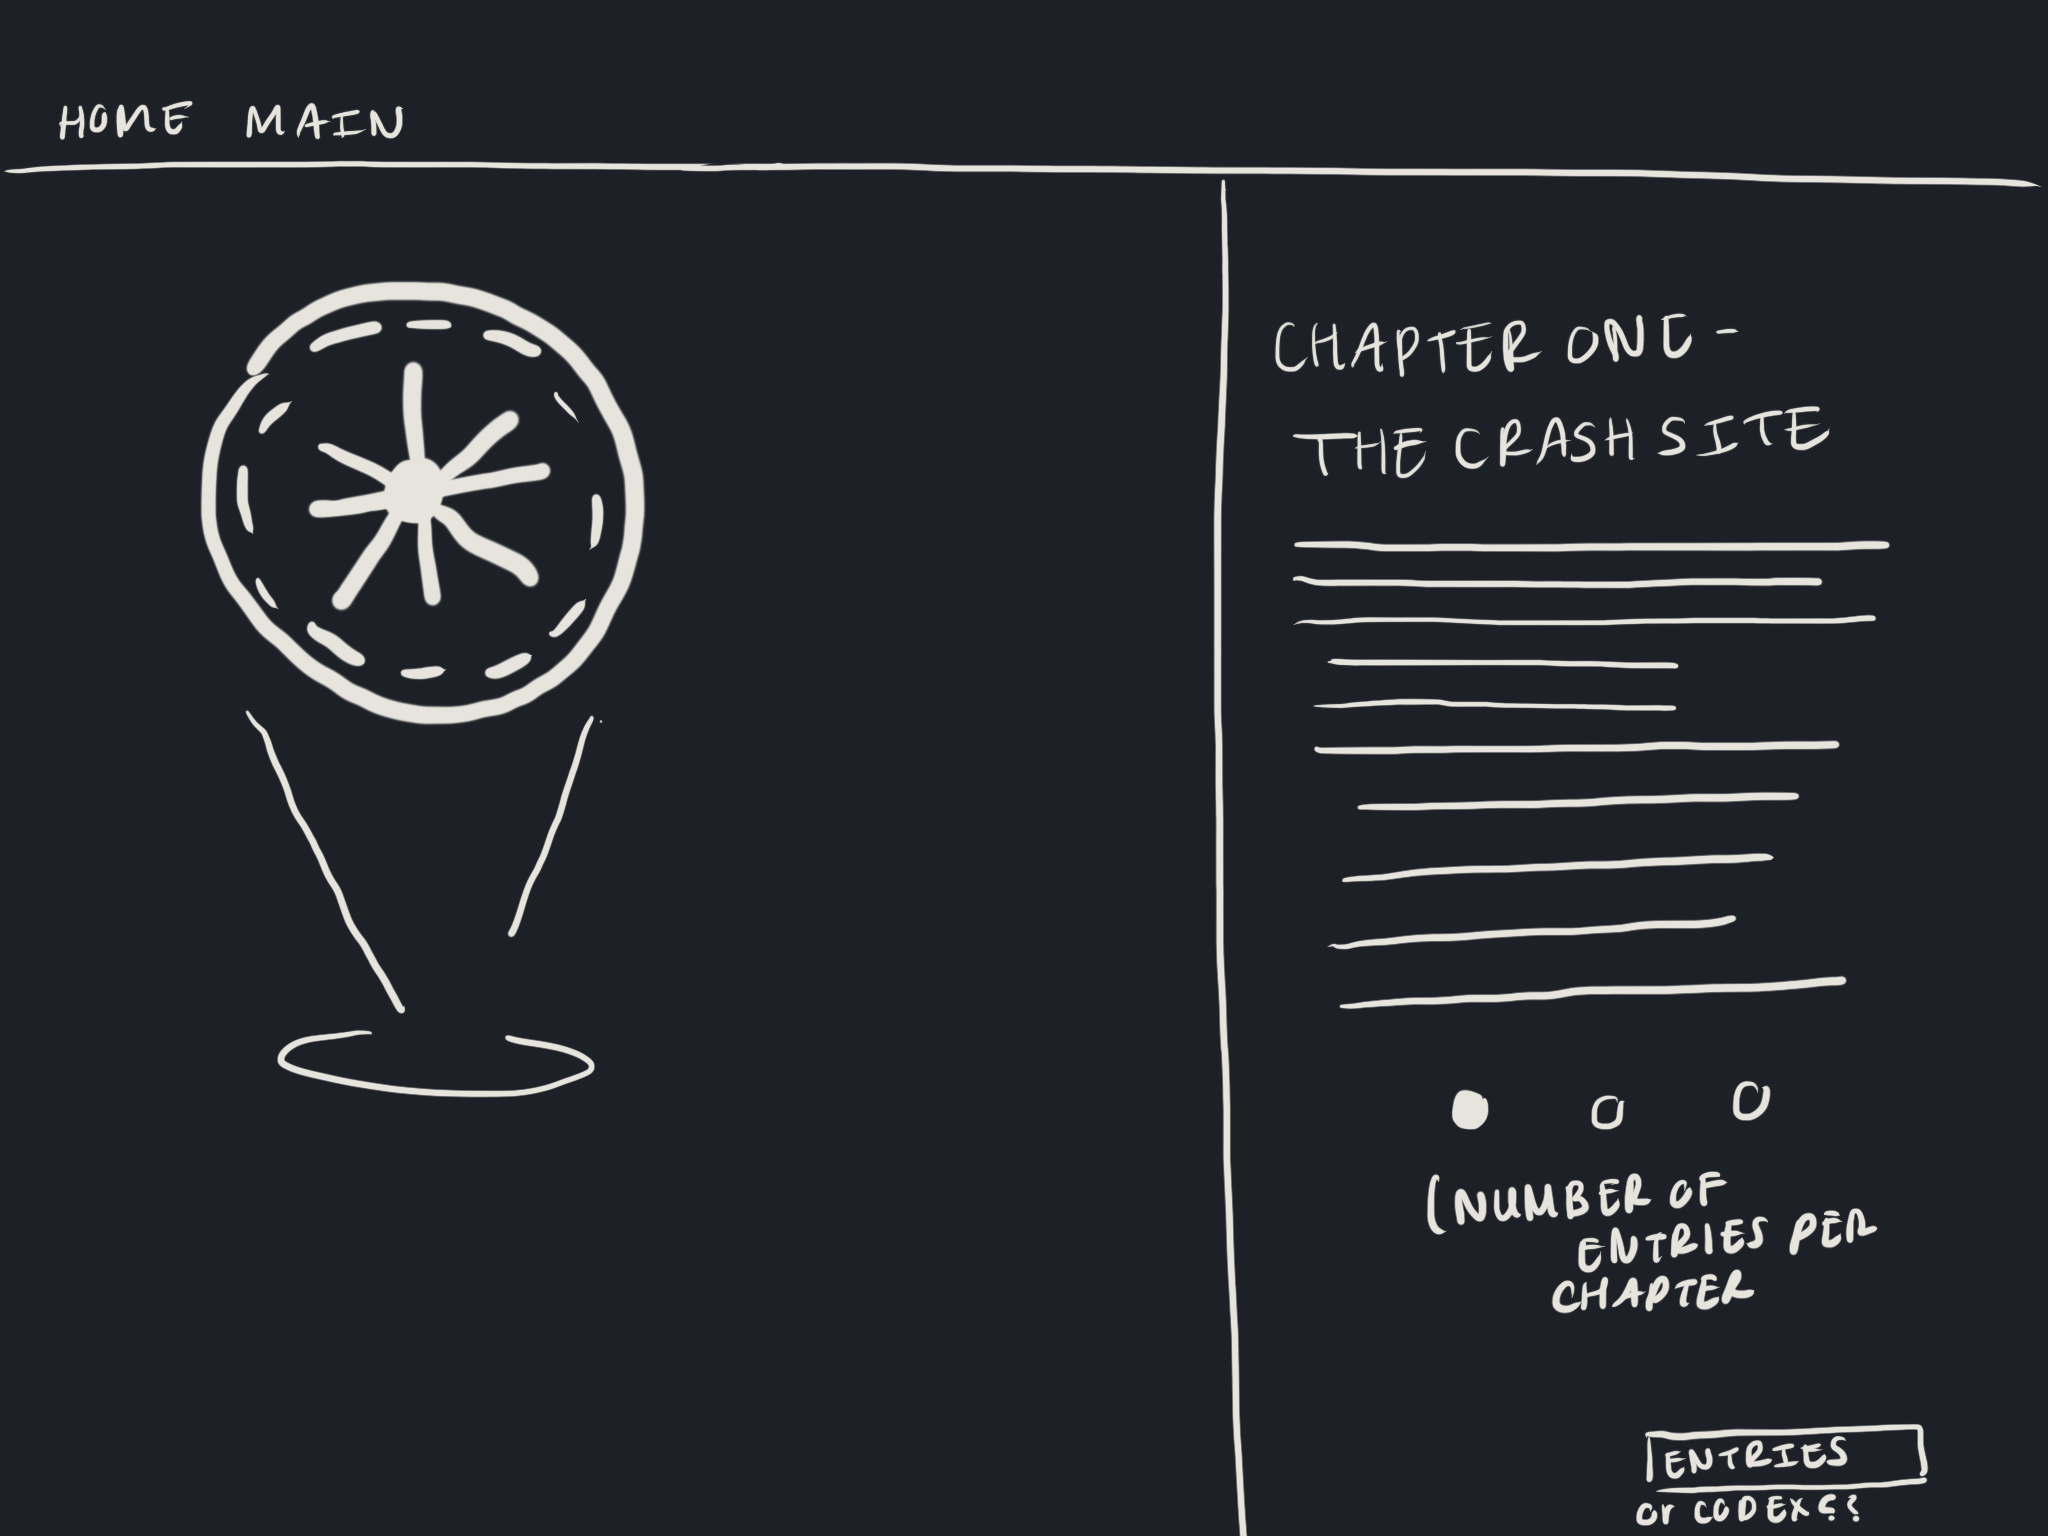 HOME MAIN
CHAPTER ONE -
THE CRASH SITE
(NUMBER OF
ENTRIES PER
CHAPTER
ENTRIES
or CODEX??